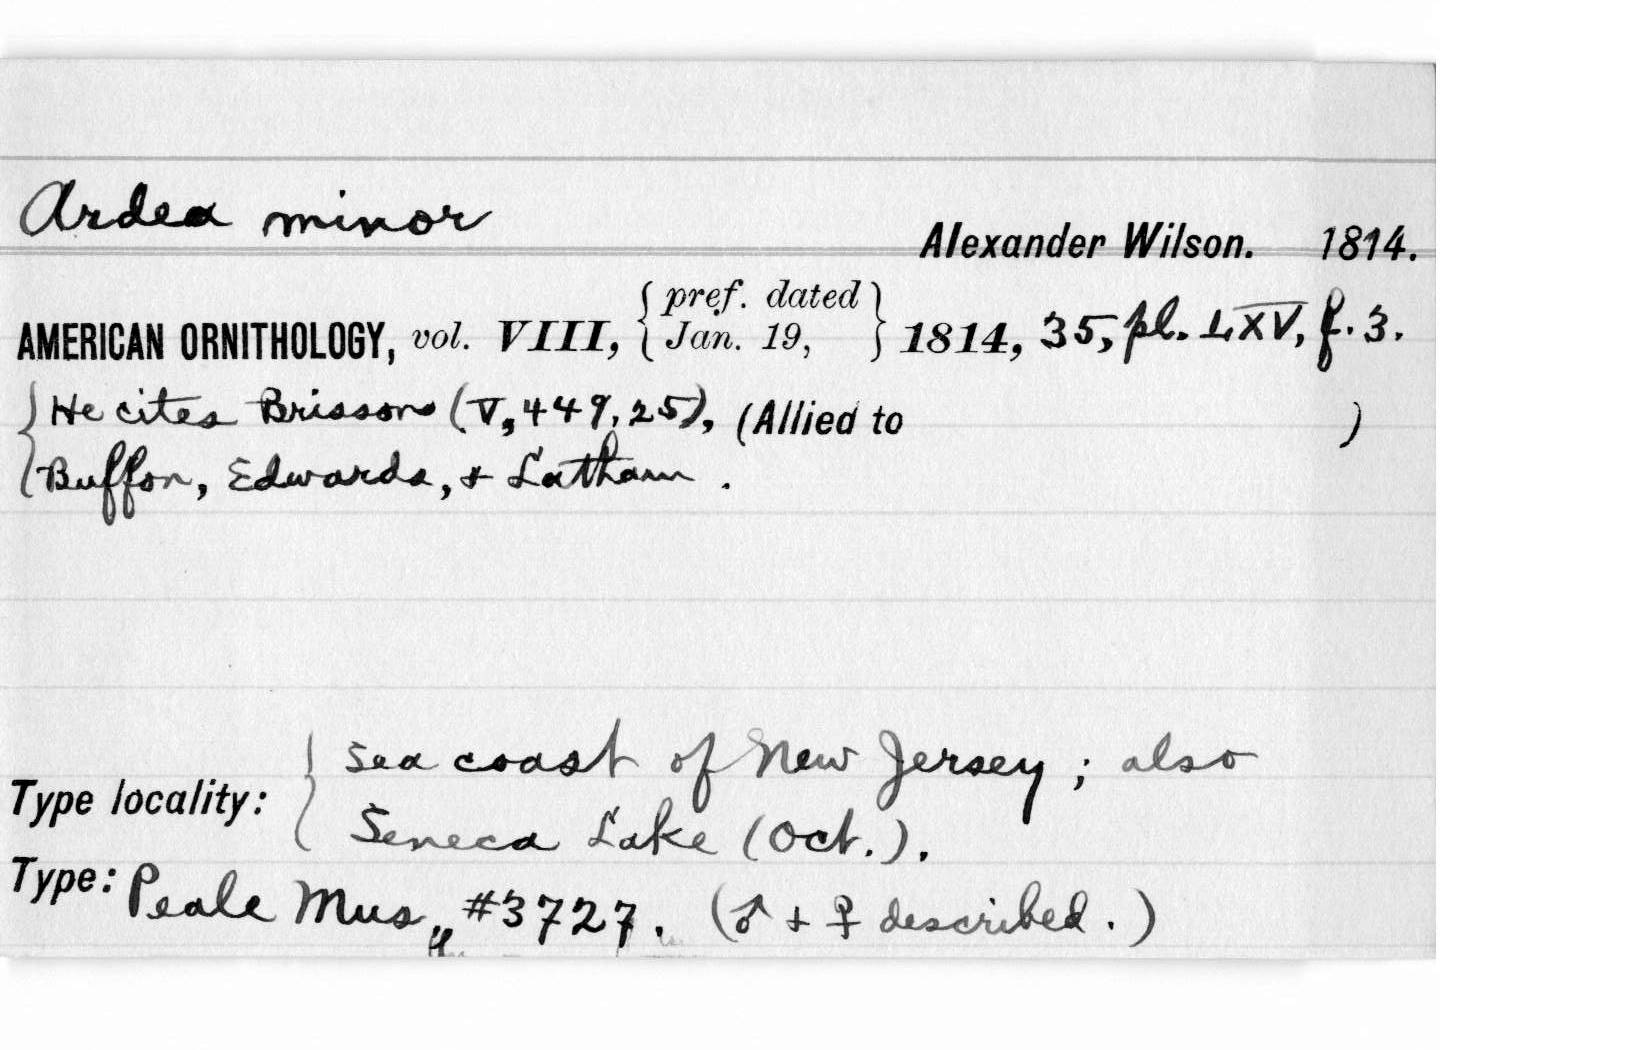 Ardea minor
Alexander Wilson. 1814.
AMERICAN ORNITHOLOGY, vol. VIII, { pref. dated Jan. 19, } 1814, 35, pl. LXV, f. 3.
{ He cites Brisson (V, 449, 25), (Allied to )
Buffon, Edwards, + Latham .
Type locality: { Sea coast of New Jersey ; also
Seneca Lake (Oct.).
Type: Peale Mus., #3727. (♂ + ♀ described . )